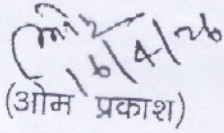 16/4/26
(ओम प्रकाश)